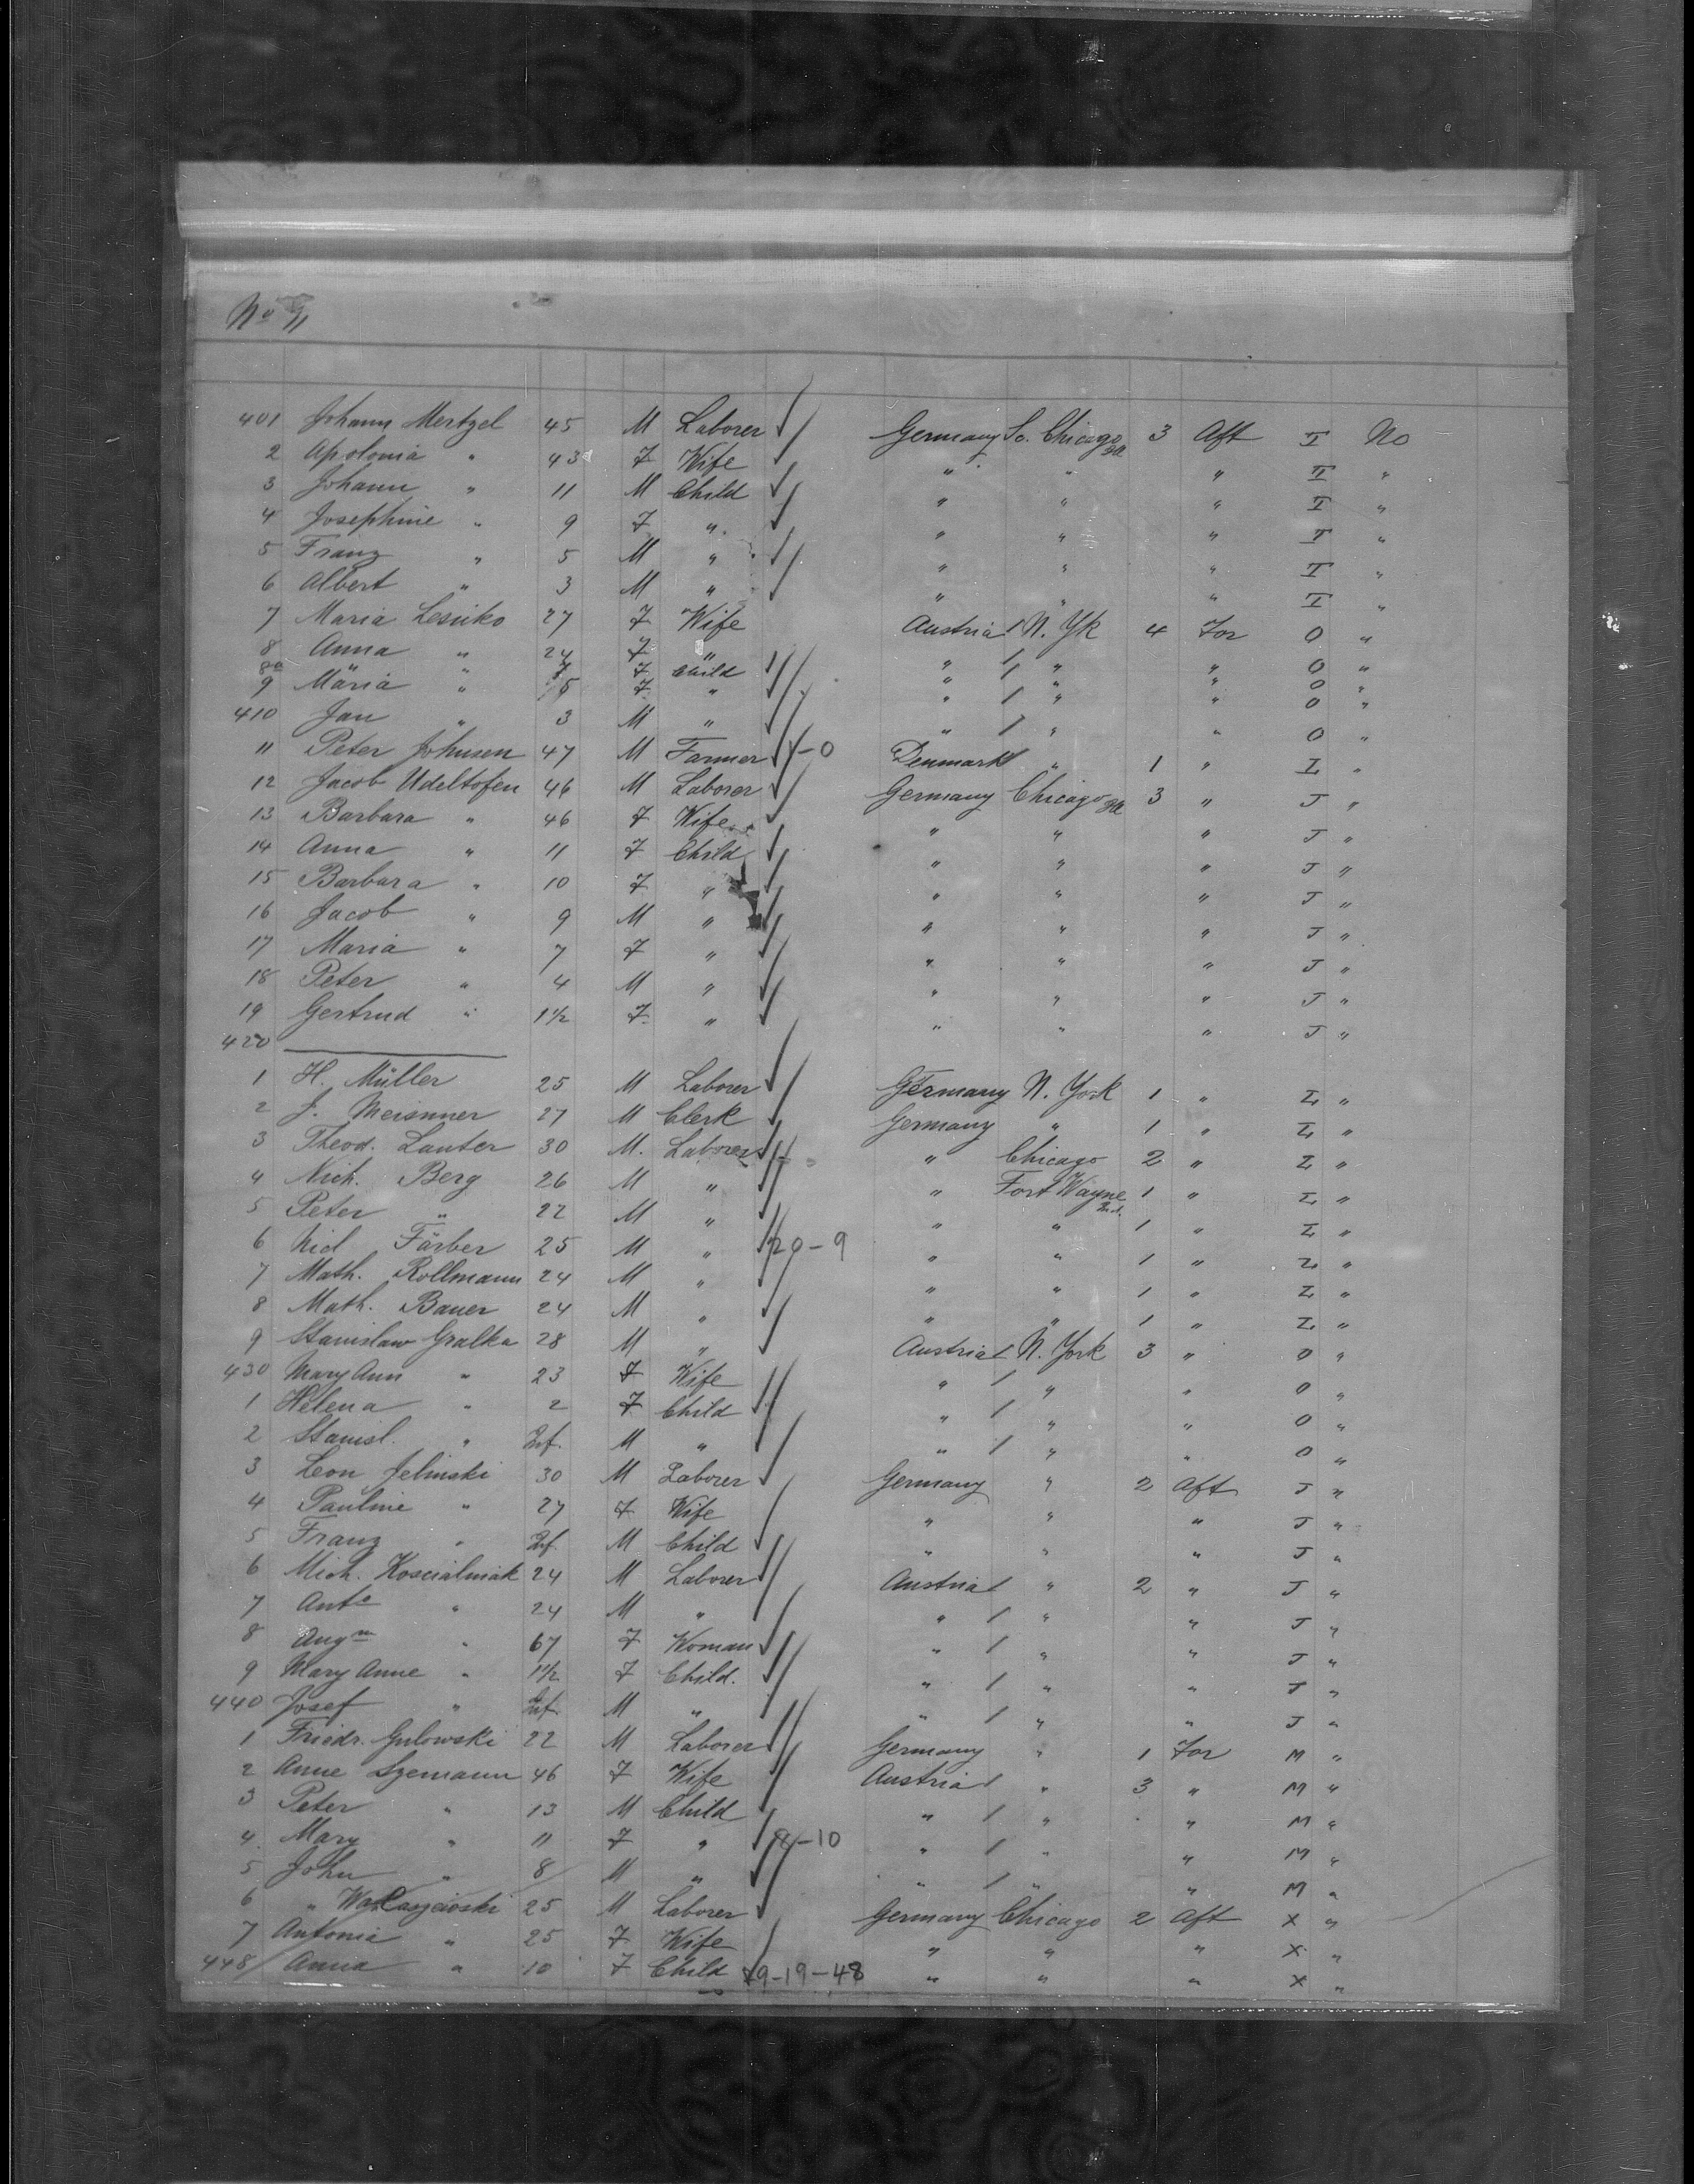 No 11
401 Johann Mertzel 45 M Laborer Germany So. Chicago Ill 3 Aft I No
2 Apolonia " 43 F Wife " " " I "
3 Johann " 11 M Child " " " I "
4 Josephine " 9 F " " " " I "
5 Franz " 5 M " " " " I "
6 Albert " 3 M " " " " I "
7 Maria Lesiiko 27 F Wife Austria / N. Yk 4 For O "
8 Anna " 24 F " " / " " O "
8a " 7 F Child " " " O "
9 Maria " 5 F " " / " " O "
410 Jan " 3 M " " / " " O "
11 Peter Johnsen 47 M Farmer 4-0 Denmark / " 1 " L "
12 Jacob Udeltofen 46 M Laborer Germany Chicago Ill 3 " J "
13 Barbara " 46 F Wife " " " J "
14 Anna " 11 F Child " " " J "
15 Barbara " 10 F " " " " J "
16 Jacob " 9 M " " " " J "
17 Maria " 7 F " " " " J "
18 Peter " 4 M " " " " J "
19 Gertrud " 1 1/2 F " " " " J "
420
1 H. Müller 25 M Laborer Germany N. York 1 " L "
2 J. Meisnner 27 M Clerk Germany " 1 " L "
3 Theod. Lauter 30 M. Laborer " Chicago 2 " L "
4 Nich. Berg 26 M " " Fort Wayne Ind. 1 " L "
5 Peter " 22 M " " " 1 " L "
6 Färber 25 M " 20-9 " " 1 " L "
7 Math. Rollmann 24 M " " " 1 " L "
8 Math. Bauer 24 M " " " 1 " L "
9 Stanislaw Gralka 28 M " Austria / N. York 3 " O "
430 Mary Ann " 23 F Wife " / " " O "
1 Helena " 2 F Child " / " " O "
2 Stanisl. " Inf. M " " / " " O "
3 Leon Jelinski 30 M Laborer Germany " 2 Aft J "
4 Pauline " 27 F Wife " " " J "
5 Franz " Inf. M Child " " " J "
6 Mich. Koscialniak 24 M Laborer Austria / " 2 " J "
7 Ant " 24 M " " / " " J "
8 " 67 F Woman " / " " J "
9 Mary Anne " 1 1/2 F Child. " / " " J "
440 Josef " Inf. M " " / " " J "
1 Friedr. Gulowski 22 M Laborer Germany " 1 For M "
2 Anne Szemann 46 F Wife Austria / " 3 " M "
3 Peter " 13 M Child " / " " M "
4 Mary " 11 F " -10 " / " " M "
5 John " 8 M " " / " " M "
6 " 25 M Laborer Germany Chicago 2 Aft X "
7 Antonia " 25 F Wife " " " X "
448 Anna " 10 F Child 9-19-48 " " " X "